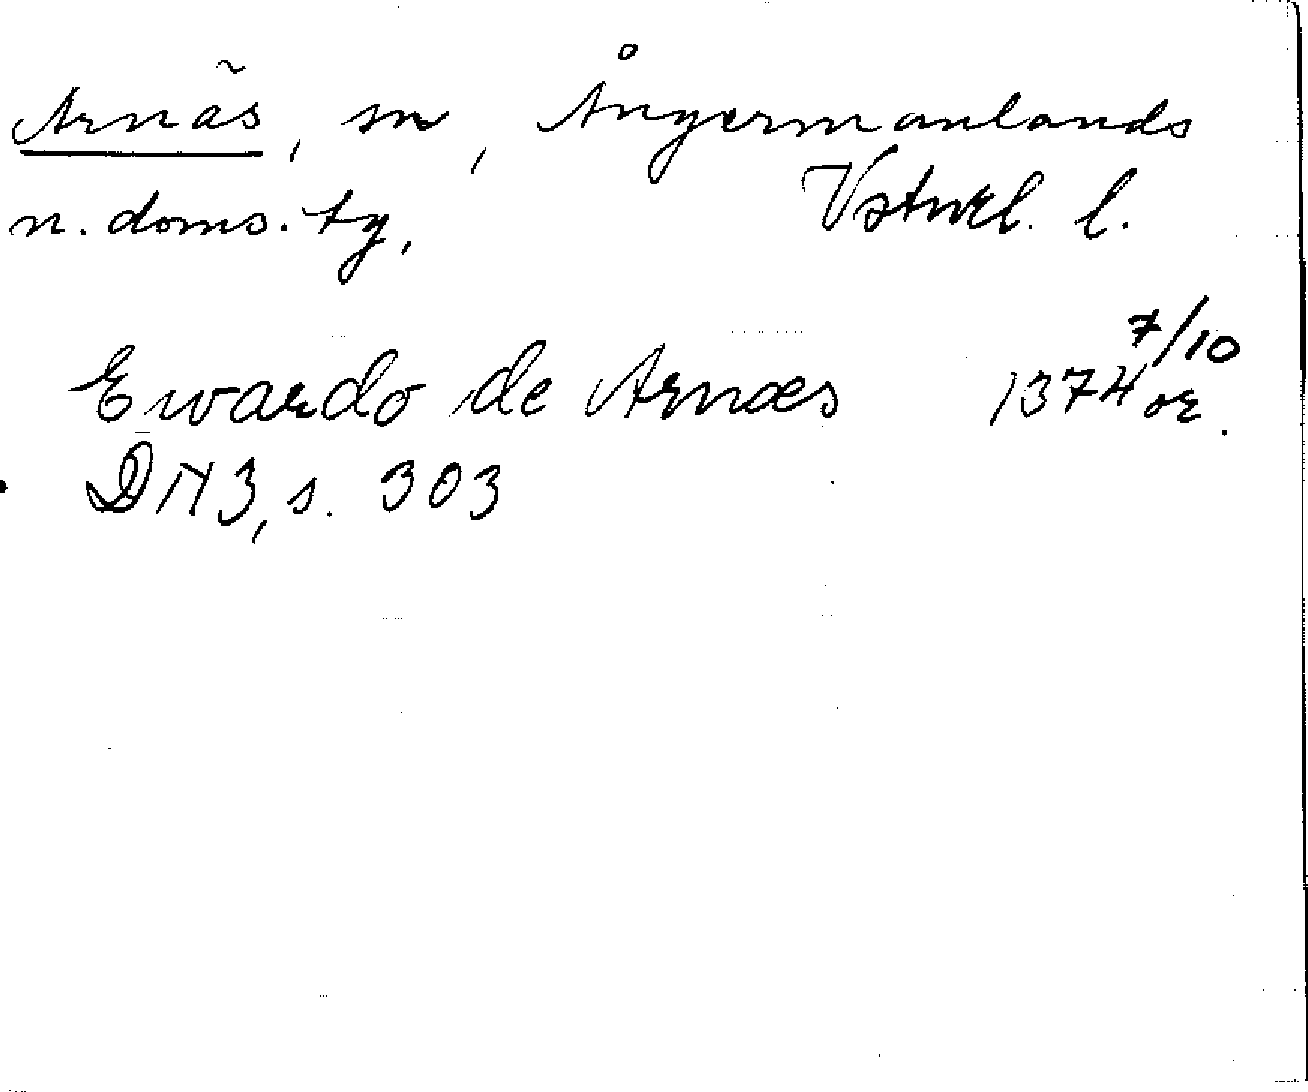 Arnäs, sn, Ångermanlands
n. doms. tg, Vstnrl. l.
Ewardo de Arnæs 1374 7/10 or.
DN 3, s. 303